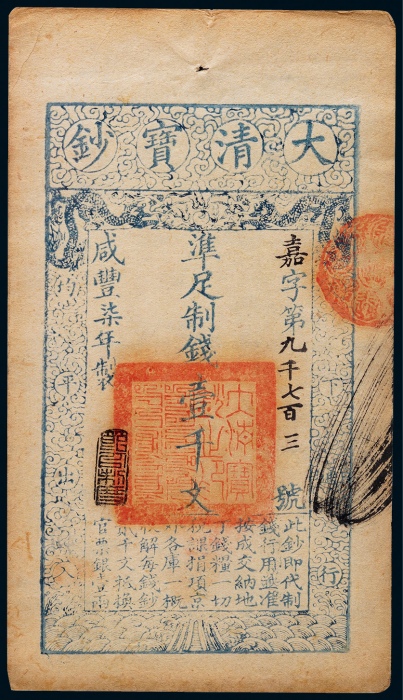 大清寶鈔
嘉字第九千七百三號
準足制錢壹千文
咸豐柒年製
下
行
均平出入
此鈔即代制
錢行用並准
按成交納地
丁錢糧一切
稅課捐項京
外各庫一概
收解每錢鈔
貳千文抵換
官票銀壹兩